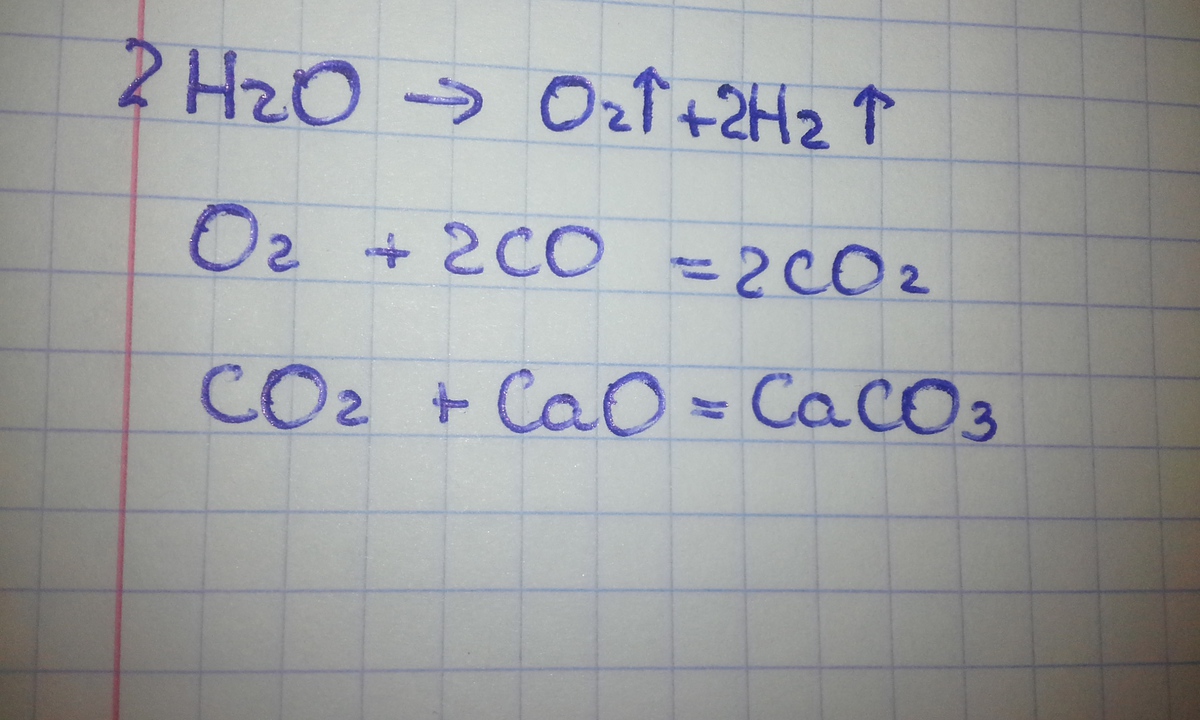 2H₂O → O₂↑ +2H₂↑
O₂ + 2CO = 2CO₂
CO₂ + CaO = CaCO₃